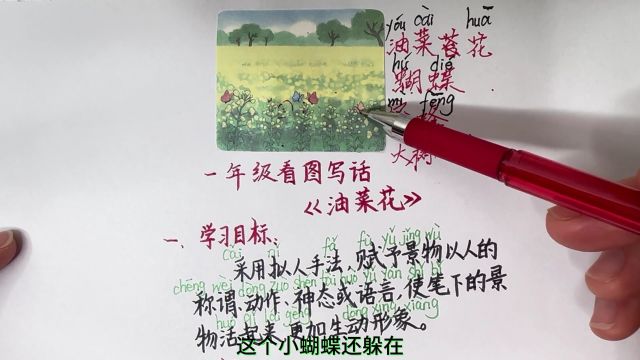 yóu cài huā
油菜苔花
hú dié
蝴蝶
mì fēng
大树
一年级看图写话
《油菜花》
一、学习目标：
cǎi nǐ fǎ fù yǔ jǐng wù
采用拟人手法，赋予景物以人的
chēng wèi dòng zuò shén tài huò yǔ yán shǐ bǐ
称谓、动作、神态或语言，使笔下的景
huó qǐ lái gèng dòng xíng xiàng
物活起来，更加生动形象。
这个小蝴蝶还躲在